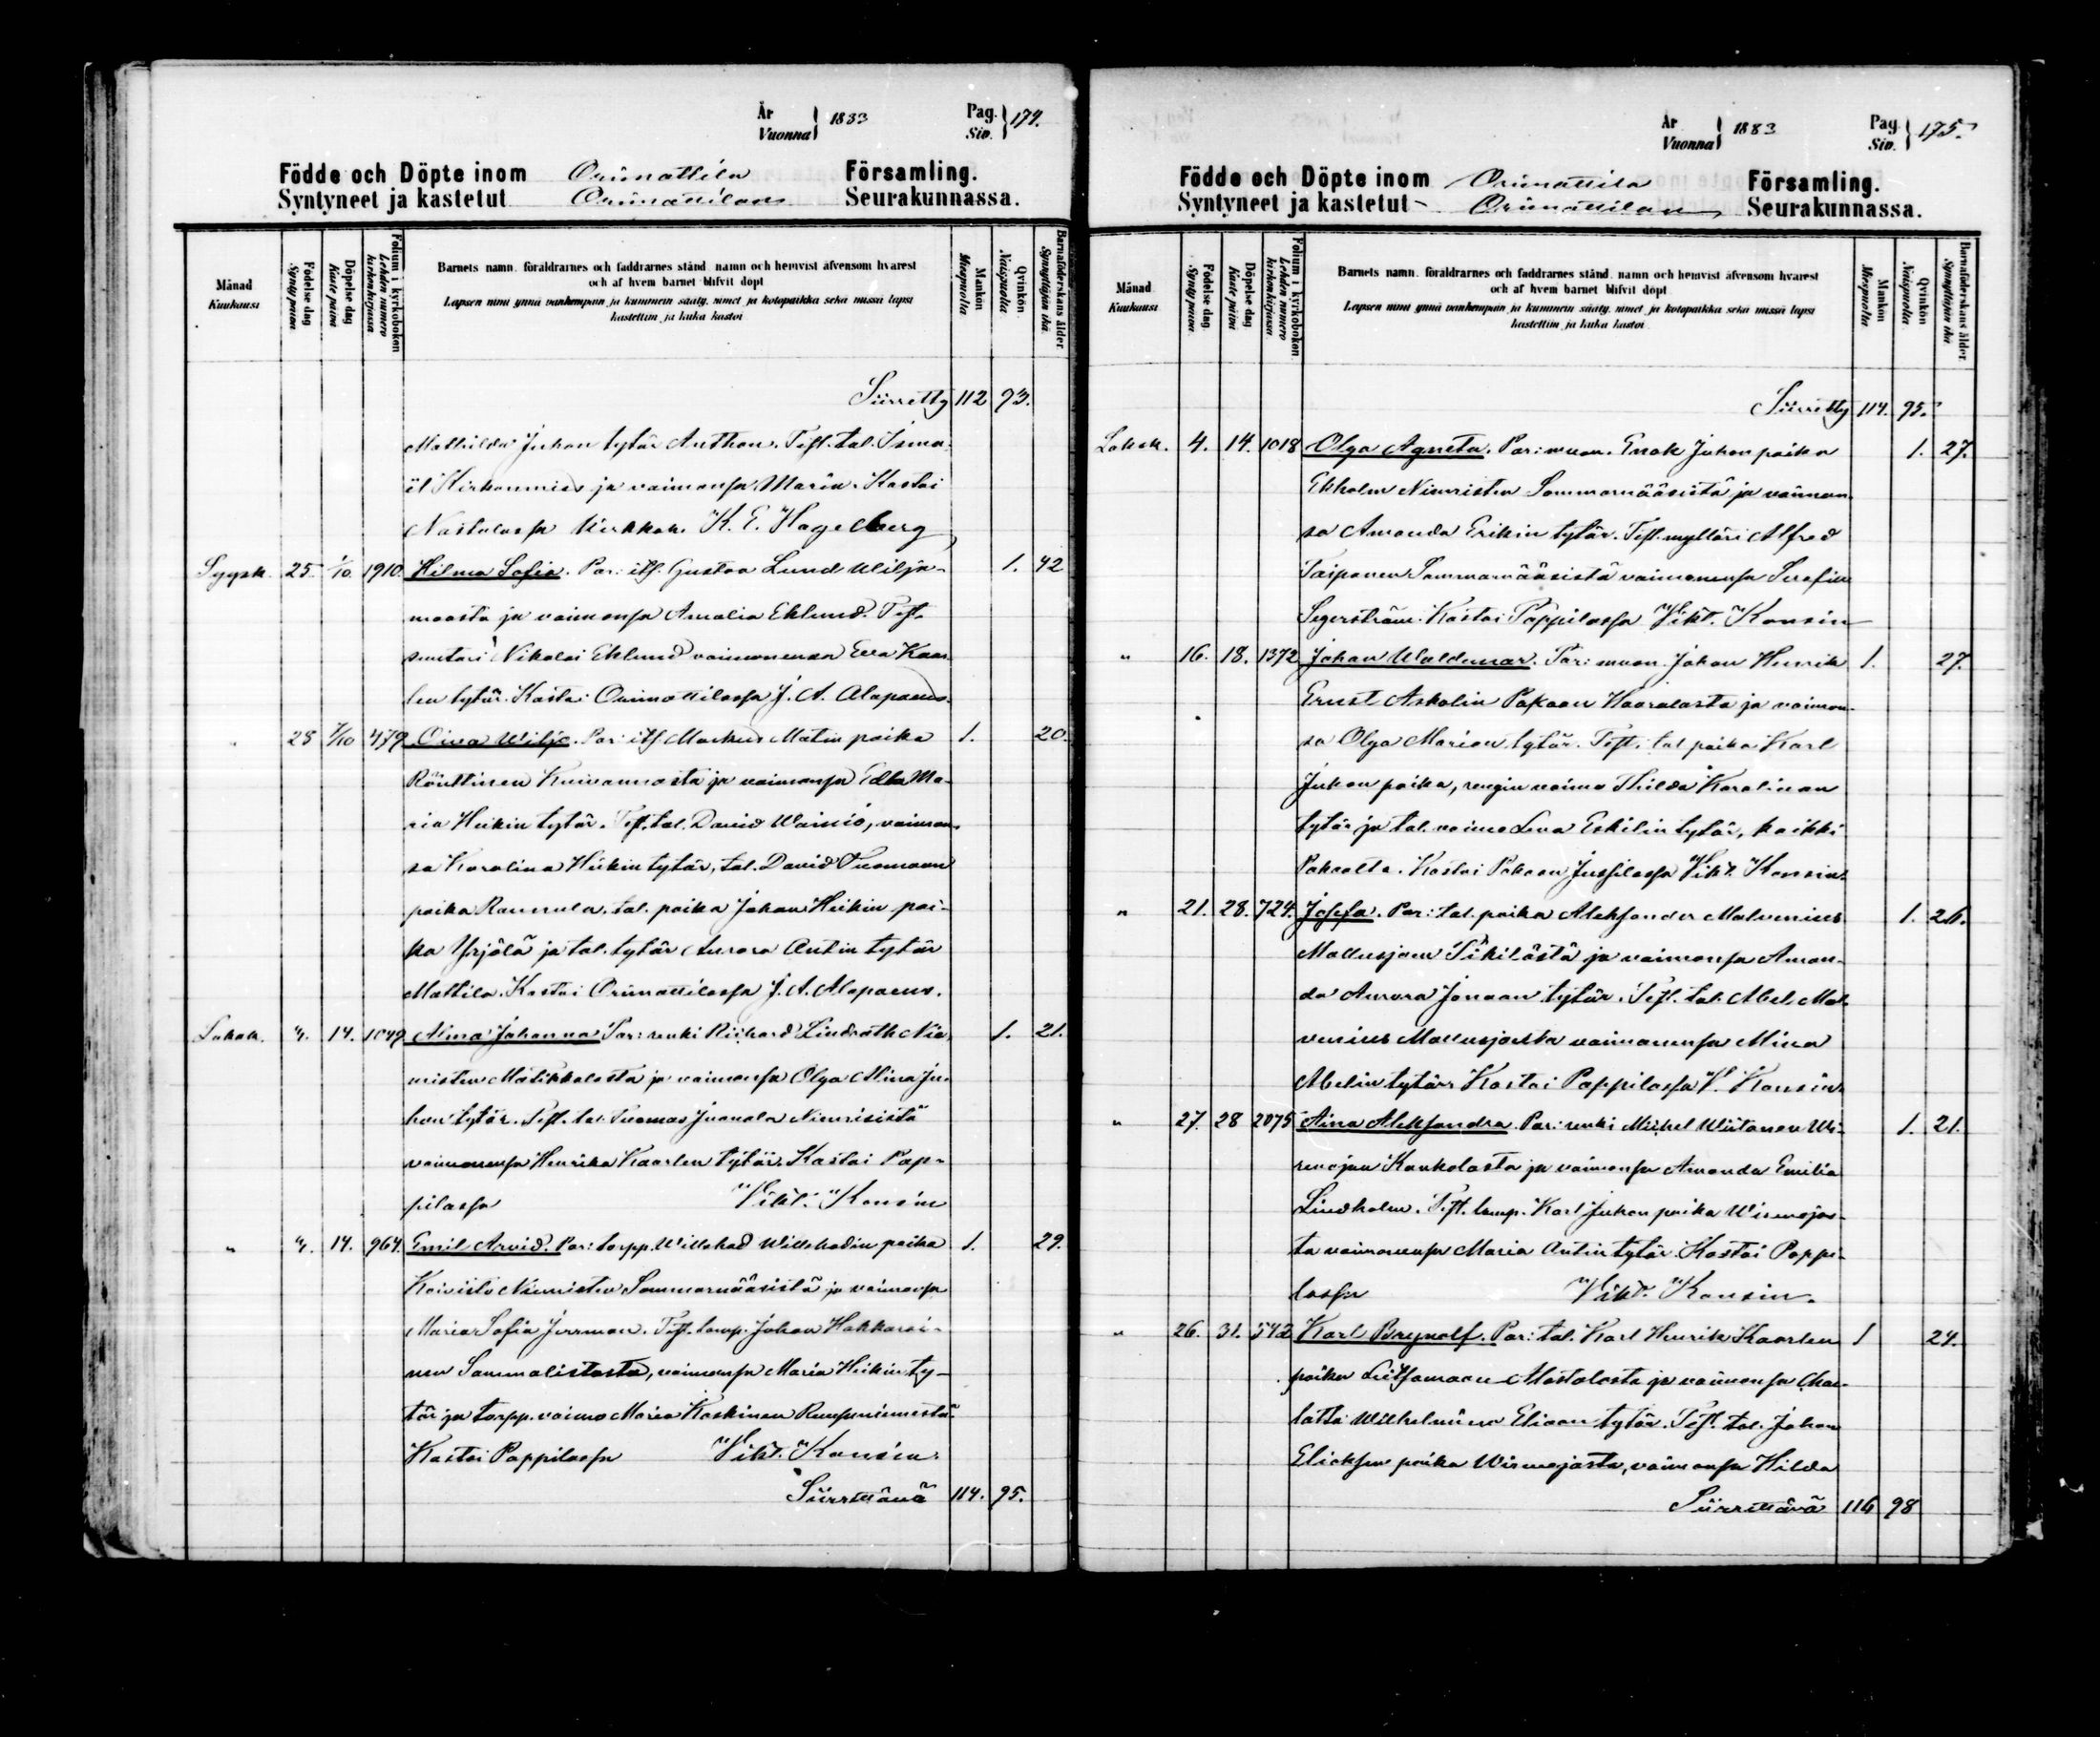 År
Vuonna } 1883
Pag.
Siv. } 174.
Födde och Döpte inom Orimattila Församling.
Syntyneet ja kastetut Orimattilan Seurakunnassa.
Månad
Kuukausi
Födelse dag
Syntypäivä
Döpelse dag
Kaste päivä
Folium i kyrkoboken
Lehden numero
kirkonkirjassa
Barnets namn, föräldrarnes och faddrarnes stånd, namn och hemvist äfvensom hvarest
och af hvem barnet blifvit döpt
Lapsen nimi ynnä vanhempain ja kummein sääty, nimet ja kotopaikka sekä missä lapsi
kastettiin ja kuka kastoi
Mankön
Miespuolia
Qvinkön
Naispuolia
Barnaföderskans ålder
Synnyttäjän ikä
Siirretty 112 93.
Mathilda Juhan tytär Anthon. Test. tal. Isma-
il Kirkonmies ja vaimonsa Maria. Kastoi
Nastolassa Kirkkoh. K. E. Hagelberg
Syysk. 25 1/10 1910. Hilma Sofia. Par: itf. Gustaa Lund Wilja- 1. 42
maasta ja vaimonsa Amalia Eklund. Test.
suutari Nikolai Eklund vaimonensa Eva Kaar-
len tytär. Kastoi Orimattilassa J. A. Alopaeus.
" 28 7/10 479 Oiva Wiljo. Par: itf. Markus Matin poika 1. 20.
Röyttinen Kuivannosta ja vaimonsa Edla Ma-
ria Heikin tytär. Test. tal. David Wainio, vaimon-
sa Karolina Heikin tytär, tal. David Tuomaan
poika Raunula, tal. poika Johan Heikin poi-
ka Yrjölä ja tal. tytär Aurora Antin tytär
Mattila. Kastoi Orimattilassa J. A. Alopaeus.
Lokak. 4. 14. 1049 Alma Johanna Par: renki Richard Lindroth Nie- 1. 21.
misten Mätikkolasta ja vaimonsa Olga Alina Ju-
han tytär. Test. tal. Tuomas Juanala Niemisistä
vaimonensa Henrika Kaarlen tytär. Kastoi Pap-
pilassa Vikt. Konsin
" 4. 14. 964 Emil Arvid. Par: torpp. Willehad Willehadin poika 1. 29.
Koivisto Niemisten Sommarnääsistä ja vaimonsa
Maria Sofia Jerrman. Test. lamp. Johan Hakkarai-
nen Sammalistosta, vaimonsa Maria Heikin ty-
tär ja torpp. vaimo Maria Koskinen Ruuhuniemestä
Kastoi Pappilassa Vikt. Konsin.
Siirrettävä 114. 95.
År
Vuonna } 1883
Pag
Siv. } 175.
Födde och Döpte inom Orimattila Församling.
Syntyneet ja kastetut Orimattilan Seurakunnassa.
Månad
Kuukausi
Födelse dag
Syntypäivä
Döpelse dag
Kaste päivä
Folium i kyrkoboken
Lehden numero
kirkonkirjassa
Barnets namn, föräldrarnes och faddrarnes stånd, namn och hemvist äfvensom hvarest
och af hvem barnet blifvit döpt
Lapsen nimi ynnä vanhempain ja kummein sääty, nimet ja kotopaikka sekä missä lapsi
kastettiin ja kuka kastoi
Mankön
Miespuolia
Qvinkön
Naispuolia
Barnaföderskans ålder
Synnyttäjän ikä
Siirretty 114. 95.
Lokak. 4. 14. 1018 Olga Agneta. Par: muon. Enok Juhan poika 1. 27.
Ekholm Niemisten Sommarnääsistä ja vaimon-
sa Amanda Erikin tytär. Test. mylläri Alfred
Taipanen Sammarnääsistä vaimonensa Serafin
Segerström. Kastoi Pappilassa Vikt. Konsin
" 16. 18. 1372 Johan Waldemar. Par: muon. Johan Henrik 1. 27.
Ernst Askolin Pakaan Haaralasta ja vaimon-
sa Olga Marian tytär. Test. tal. poika Karl
Juhan poika, rengin vaimo Thilda Karolinan
tytär ja tal. vaimo Leva Eskilin tytär, kaikki
Pakaalta. Kastoi Pakaan Jussilassa Vikt. Konsin.
" 21. 28. 724. Josefa. Par: tal. poika Aleksander Malvenius 1. 26.
Mallusjoen Pikilästä ja vaimonsa Aman-
da Aurora Jonaan tytär. Test. tal. Abel Mal-
venius Mallusjoelta vaimonensa Mina
Abelin tytär Kastoi Pappilassa V. Konsin.
" 27. 28 2075 Aina Aleksandra. Par: renki Michel Wiitanen Wi- 1. 21.
renojan Kankolasta ja vaimonsa Amanda Emilia
Lindholm. Test. lamp. Karl Juhan poika Wirenojas-
ta vaimonensa Maria Antin tytär. Kastoi Pappi-
lassa Vikt. Konsin.
" 26. 31. 542 Karl Brynolf. Par: tal. Karl Henrik Kaarlen 1 24.
poika Leitsamaan Mastolasta ja vaimonsa Char-
lotta Wilhelmiina Eliaan tytär. Test. tal. Johan
Eliaksen poika Wirenojasta, vaimonsa Hilda
Siirrettävä 116 98